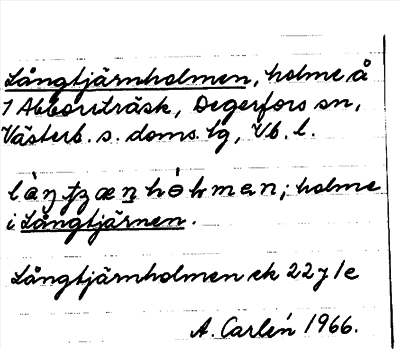 Långtjärnholmen, holme å
7 Abborrträsk, Degerfors sn,
Västerb. s. doms. lg, Vb. l.
i Långtjärnen.
Långtjärnholmen ek 22 y 1 e
A. Carlén 1966.